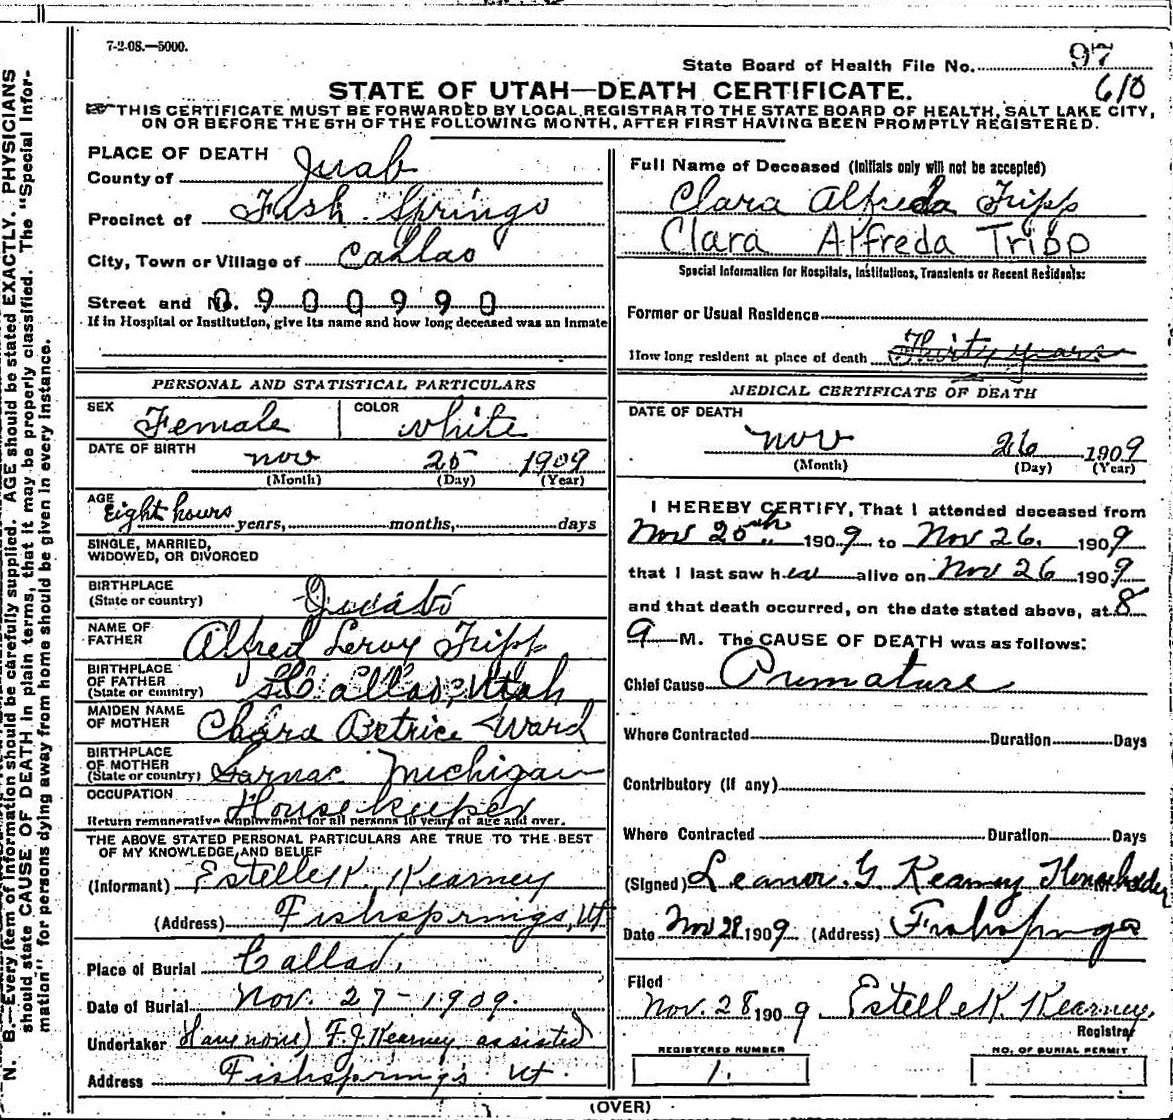 7-2-08.—5000.
State Board of Health File No. 97
610
STATE OF UTAH—DEATH CERTIFICATE.
THIS CERTIFICATE MUST BE FORWARDED BY LOCAL REGISTRAR TO THE STATE BOARD OF HEALTH, SALT LAKE CITY,
ON OR BEFORE THE 5TH OF THE FOLLOWING MONTH, AFTER FIRST HAVING BEEN PROMPTLY REGISTERED.
N. B.—Every item of information should be carefully supplied. AGE should be stated EXACTLY. PHYSICIANS
should state CAUSE OF DEATH in plain terms, that it may be properly classified. The "Special Infor-
mation" for persons dying away from home should be given in every instance.
PLACE OF DEATH
County of Juab
Precinct of Fish Springs
City, Town or Village of Callao
Street and No. 0900990
If in Hospital or Institution, give its name and how long deceased was an inmate
PERSONAL AND STATISTICAL PARTICULARS
SEX Female COLOR white
DATE OF BIRTH Nov 25 1909
(Month) (Day) (Year)
AGE Eight hours years, months, days
SINGLE, MARRIED,
WIDOWED, OR DIVORCED
BIRTHPLACE
(State or country)
NAME OF
FATHER Alfred Leroy Tripp
BIRTHPLACE
OF FATHER
(State or country) Callao, Utah
MAIDEN NAME
OF MOTHER Chára Betrice Ward
BIRTHPLACE
OF MOTHER
(State or country) Michigan
OCCUPATION House keeper
Return remunerative employment for all persons 10 years of age and over.
THE ABOVE STATED PERSONAL PARTICULARS ARE TRUE TO THE BEST
OF MY KNOWLEDGE AND BELIEF
(Informant) Estelle K. Kearney
(Address) Fishsprings, Ut
Place of Burial Callao,
Date of Burial Nov. 27-1909.
Undertaker Have none) F. J. Kearney assisted
Address Fishsprings Ut.
Full Name of Deceased (Initials only will not be accepted)
Clara Alfreda Tripp
Clara Alfreda Tripp
Special Information for Hospitals, Institutions, Transients or Recent Residents:
Former or Usual Residence
How long resident at place of death Thirty years
MEDICAL CERTIFICATE OF DEATH
DATE OF DEATH
Nov 26 1909
(Month) (Day) (Year)
I HEREBY CERTIFY, That I attended deceased from
Nov 25th 1909 to Nov 26. 1909
that I last saw her alive on Nov 26 1909
and that death occurred, on the date stated above, at 8
a M. The CAUSE OF DEATH was as follows:
Chief Cause Premature
Where Contracted Duration Days
Contributory (if any)
Where Contracted Duration Days
(Signed) Leanor. G. Kearney Householder
Date Nov 28 1909 (Address) Fishsprings
Filed
Nov. 28 1909 Estelle K. Kearney.
Registrar
REGISTERED NUMBER
1.
NO. OF BURIAL PERMIT
(OVER)